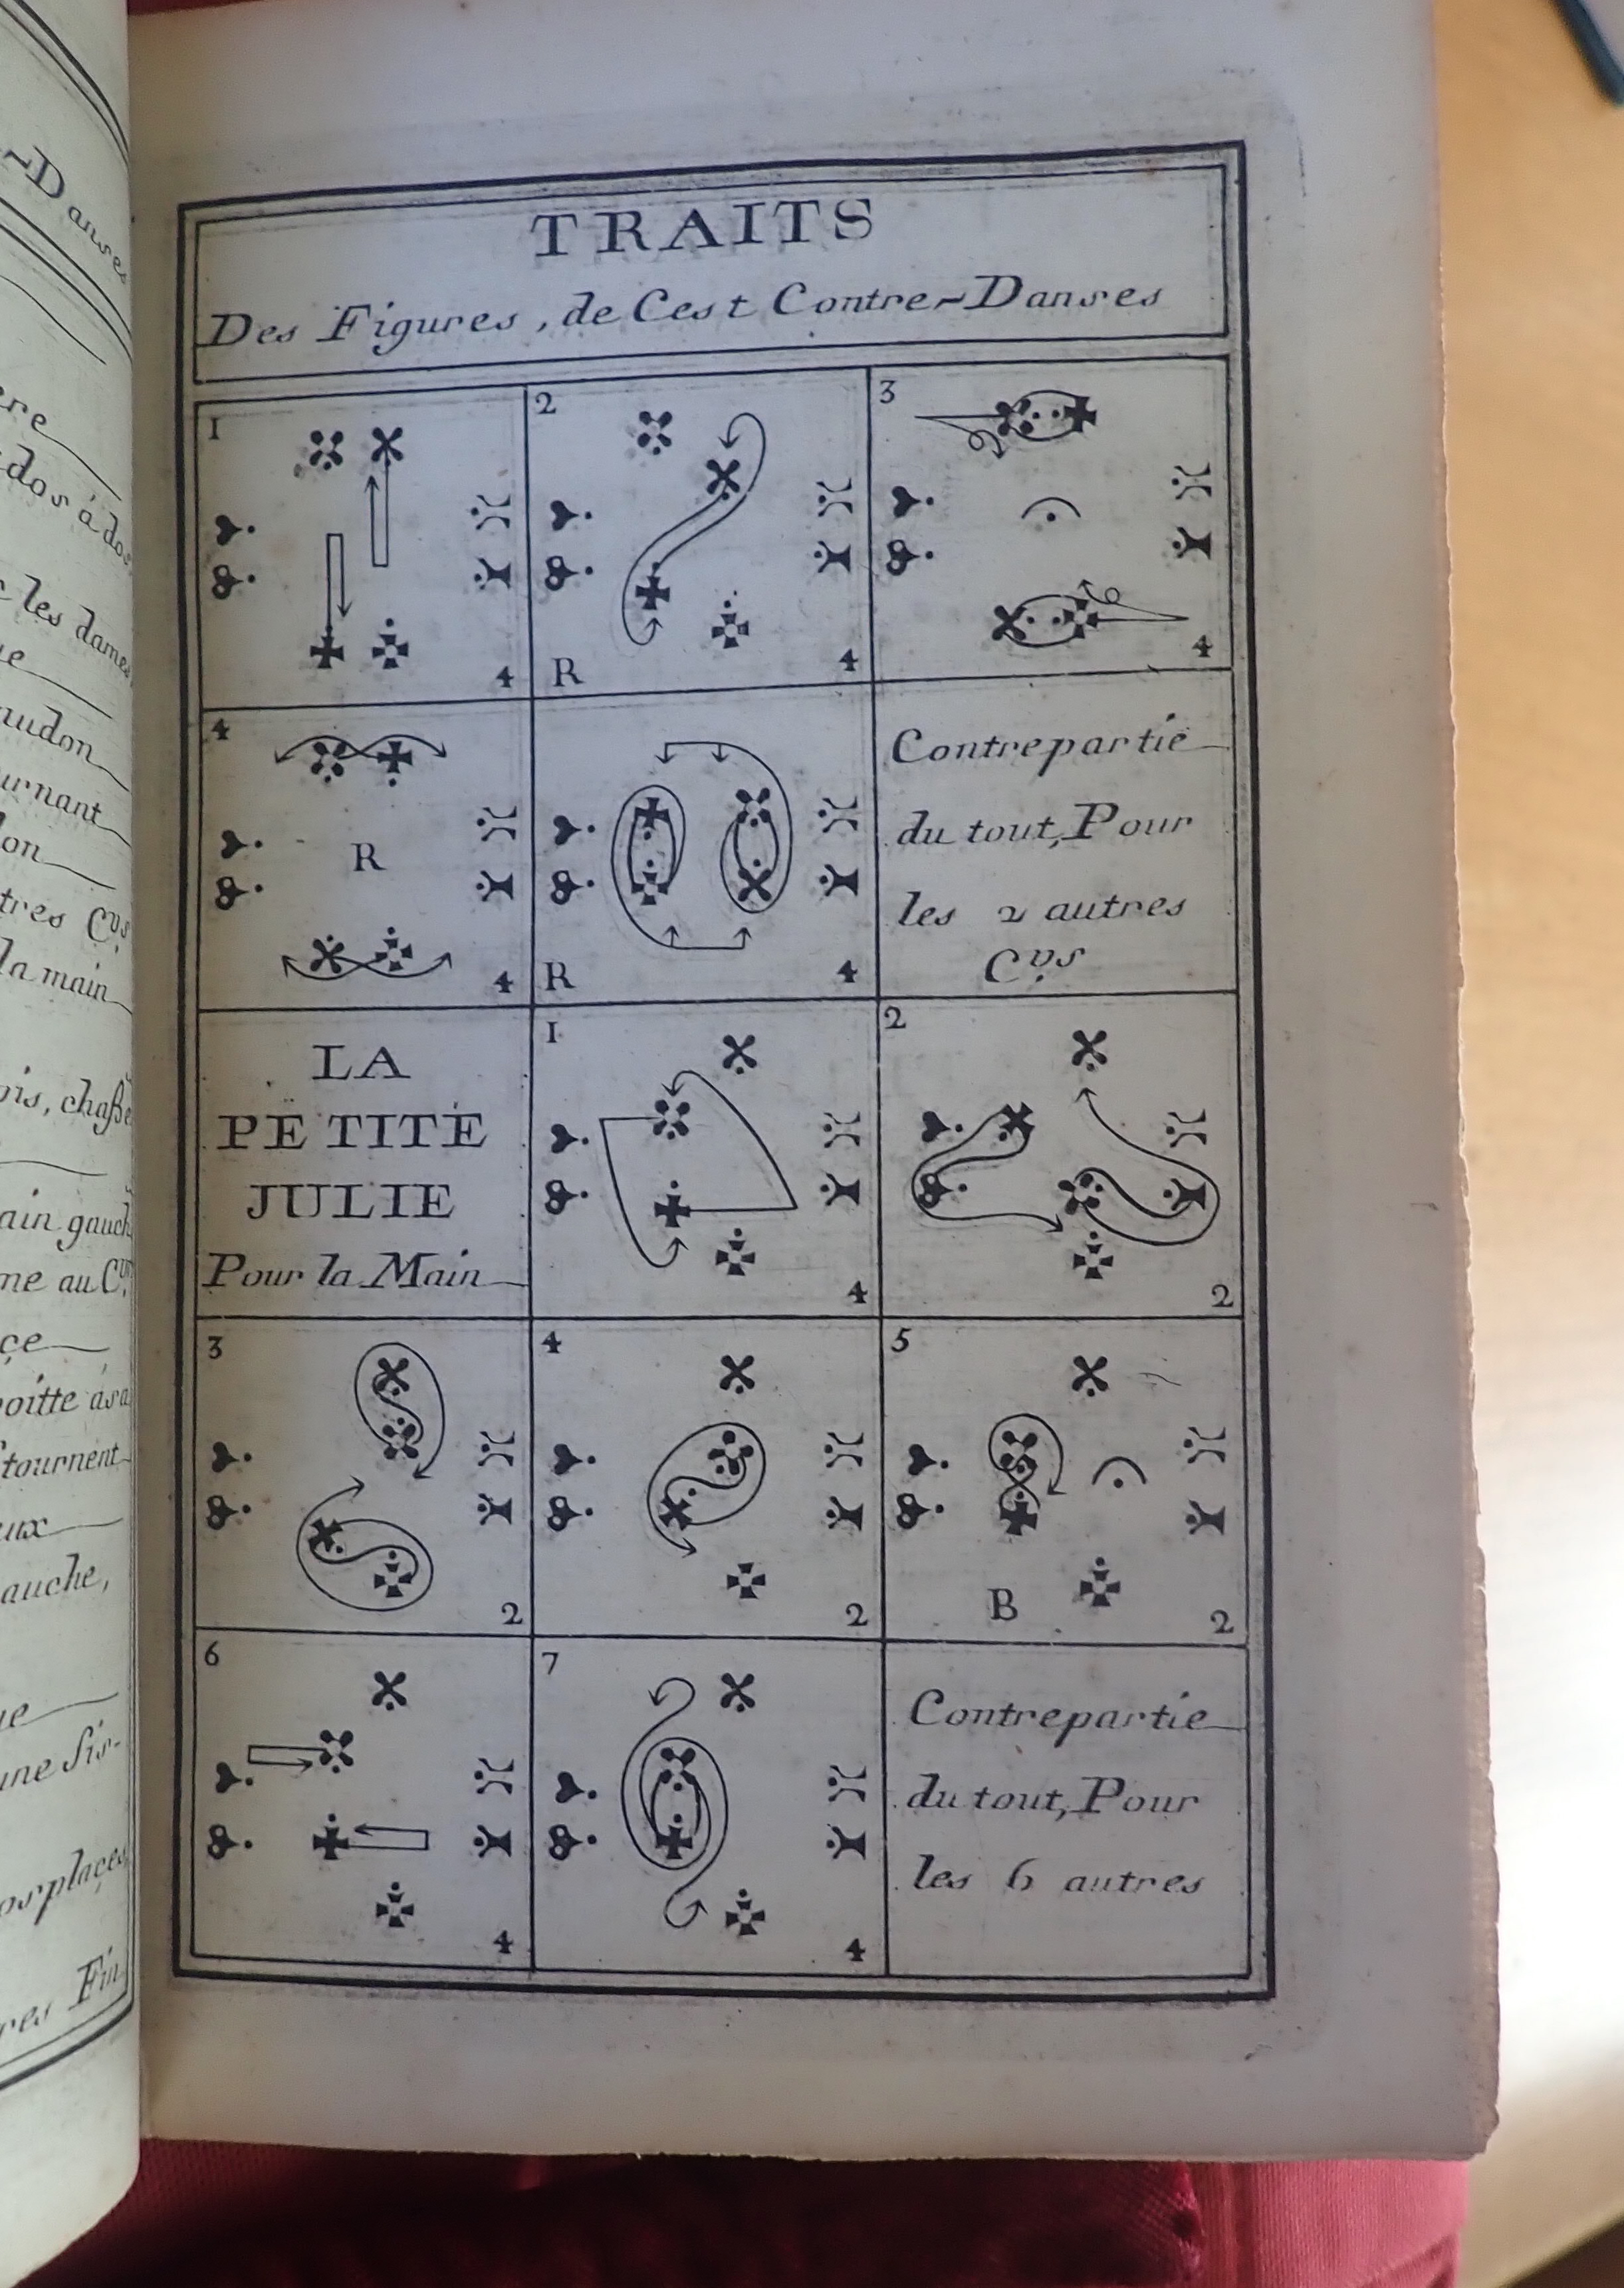 ~Danses
ere
dos à dos
les dames
audon
urnant
lon
tres C.vs
la main
ois, chaße
ain gauch
me au C.
çe
tournent
eux
auche,
ue
une Sis-
os places
res Fin
TRAITS
Des Figures, de Cest Contre-Danses
1
4
2
R
4
3
4
4
R
4
R
4
Contrepartie
du tout, Pour
les 2 autres
C.vs
LA
PETITE
JULIE
Pour la Main
1
4
2
2
3
2
4
2
5
B
2
6
4
7
4
Contrepartie
du tout, Pour
les 6 autres